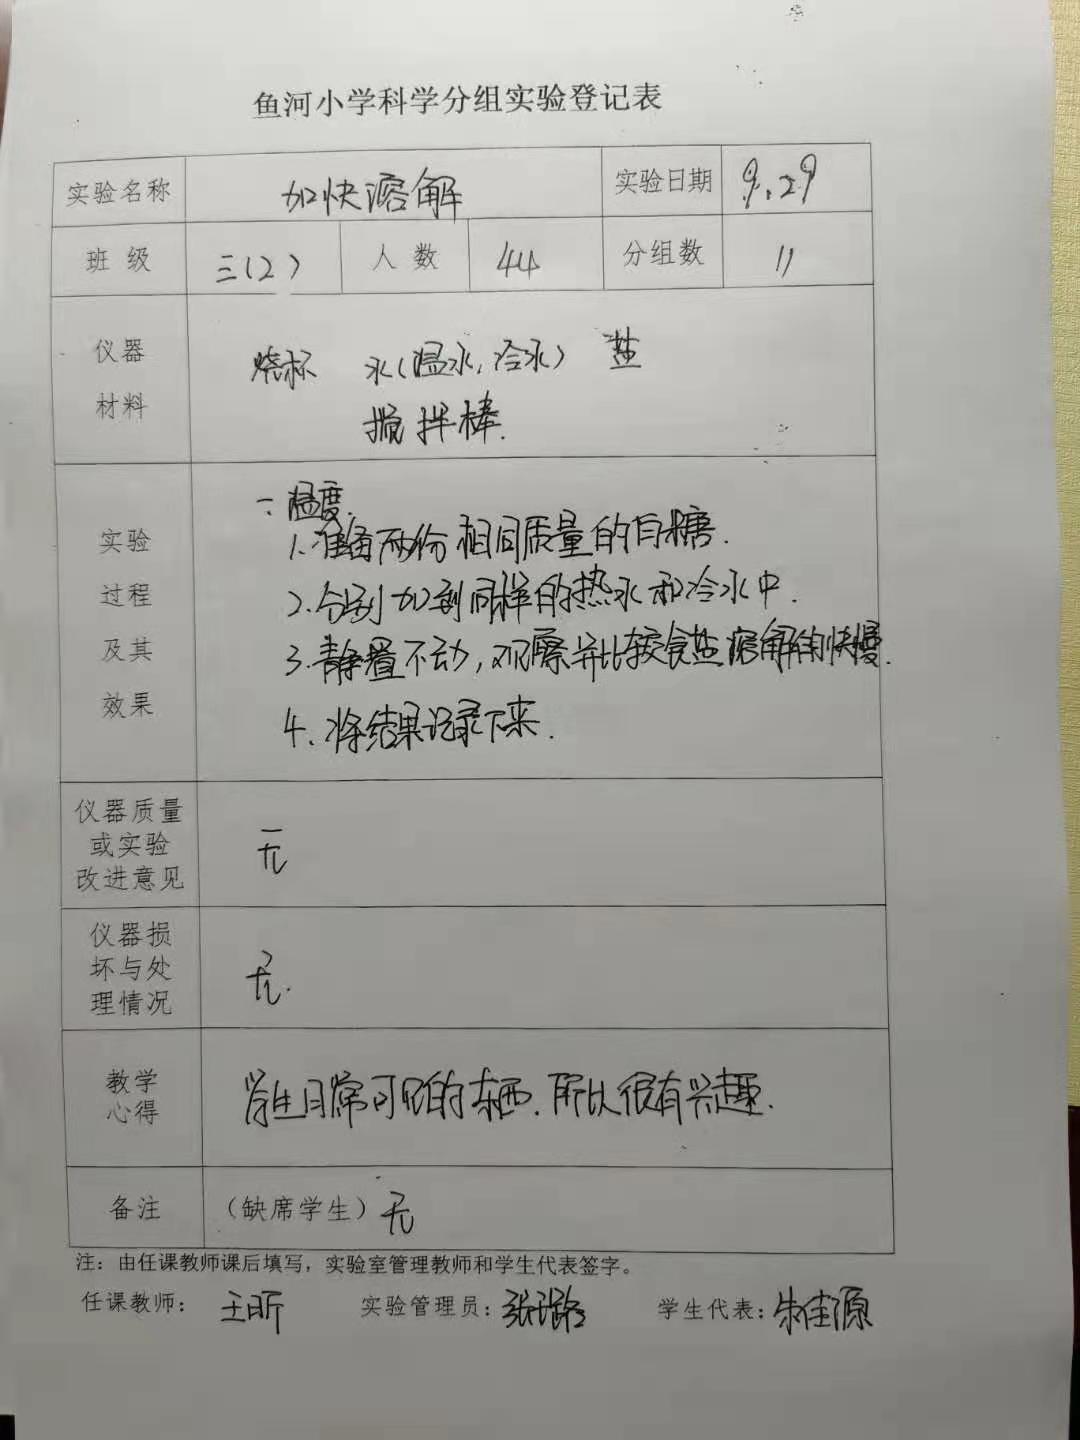 鱼河小学科学分组实验登记表
实验名称 加快溶解 实验日期 9.29
班 级 三(2) 人 数 44 分组数 11
仪器
材料
烧杯 水(温水,冷水) 盐
搅拌棒.
实验
过程
及其
效果
一.温度.
1.准备两份相同质量的白糖.
2.分别加到同样的热水和冷水中.
3.静置不动,观察并比较食盐溶解的快慢.
4.将结果记录下来.
仪器质量
或实验
改进意见
无
仪器损
坏与处
理情况
无.
教学
心得
学生日常可见的东西.所以很有兴趣.
备注 (缺席学生) 无
注:由任课教师课后填写,实验室管理教师和学生代表签字。
任课教师: 王昕 实验管理员: 学生代表: 朱佳源